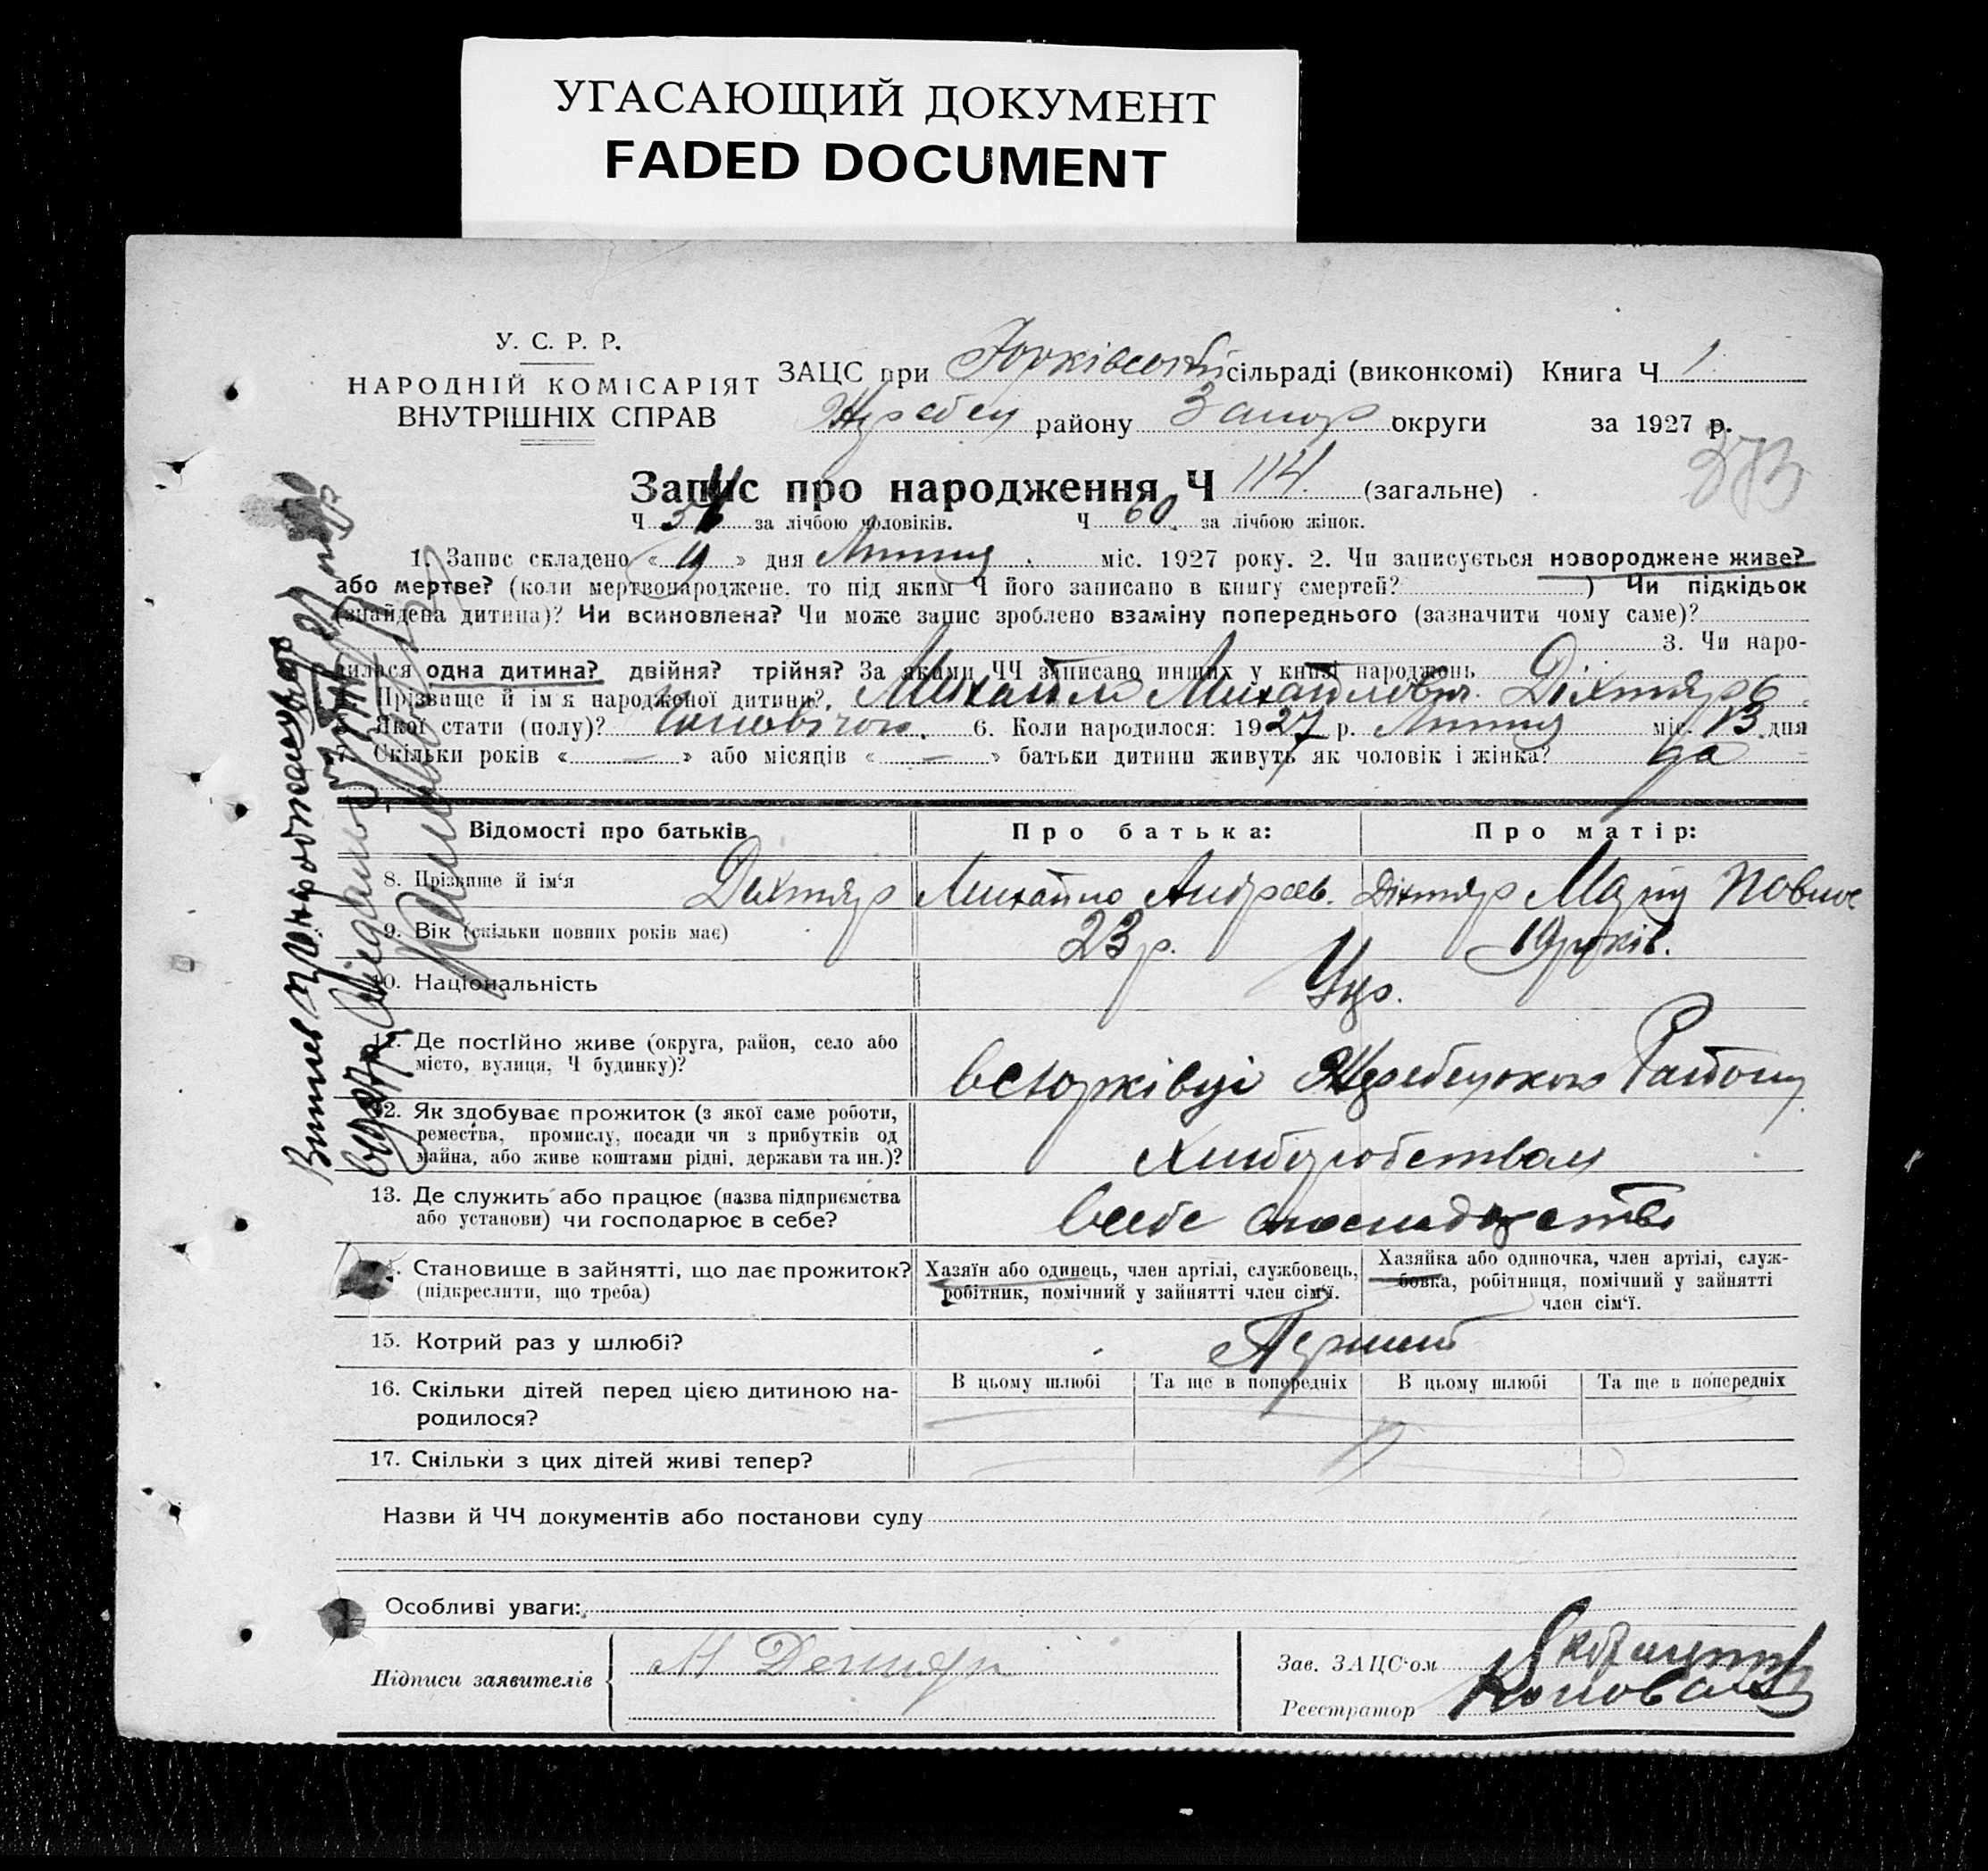 УГАСАЮЩИЙ ДОКУМЕНТ
FADED DOCUMENT
У. С. Р. Р.
НАРОДНІЙ КОМІСАРІЯТ
ВНУТРІШНІХ СПРАВ
ЗАЦС при Юрківській сільраді (виконкомі) Книга Ч 1
Жеребец району Запор округи за 1927 р.
Запис про народження Ч 114. (загальне)
Ч 54 за лічбою чоловіків. Ч 60. за лічбою жінок.
1. Запис складено « » дня Липня міс. 1927 року. 2. Чи записується новороджене живе?
або мертве? (коли мертвонароджене. то під яким Ч його записано в книгу смертей? ) Чи підкідьок
(знайдена дитина)? Чи всиновлена? Чи може запис зроблено взаміну попереднього (зазначити чому саме)?
3. Чи наро-
дилася одна дитина? двійня? трійня? За якими ЧЧ записано инших у книзі народжень
Прізвище й ім'я народженої дитини? Михайло Михайлович Діхтярь
Якої стати (полу)? 6. Коли народилося: 1927 р. Липня міс. 13 дня
7. Скільки років « — » або місяців « — » батьки дитини живуть як чоловік і жінка? да
Відомості про батьків Про батька: Про матір:
8. Прізвище й ім'я Дихтяр Михайло Андреев. Діхтяр Марія
9. Вік (скільки повних років має) 23 р. 19 років.
10. Національність Укр.
11. Де постійно живе (округа, район, село або
місто, вулиця, Ч будинку)?
в с Юрківці Жеребецького Району
12. Як здобуває прожиток (з якої саме роботи,
ремества, промислу, посади чи з прибутків од
майна, або живе коштами рідні, держави та ин.)?
Хлиборобством
13. Де служить або працює (назва підприємства
або установи) чи господарює в себе?
в себе
14. Становище в зайнятті, що дає прожиток?
(підкреслити, що треба)
Хазяїн або одинець, член артілі, службовець,
робітник, помічний у зайнятті член сім'ї.
Хазяйка або одиночка, член артілі, служ-
бовка, робітниця, помічний у зайнятті
член сім'ї.
15. Котрий раз у шлюбі? Перший
16. Скільки дітей перед цією дитиною на-
родилося?
В цьому шлюбі Та ще в попередніх В цьому шлюбі Та ще в попередніх
17. Скільки з цих дітей живі тепер?
Назви й ЧЧ документів або постанови суду
Особливі уваги:
Підписи заявителів М Дехтяр
Зав. ЗАЦС'ом
Реєстратор Коновал